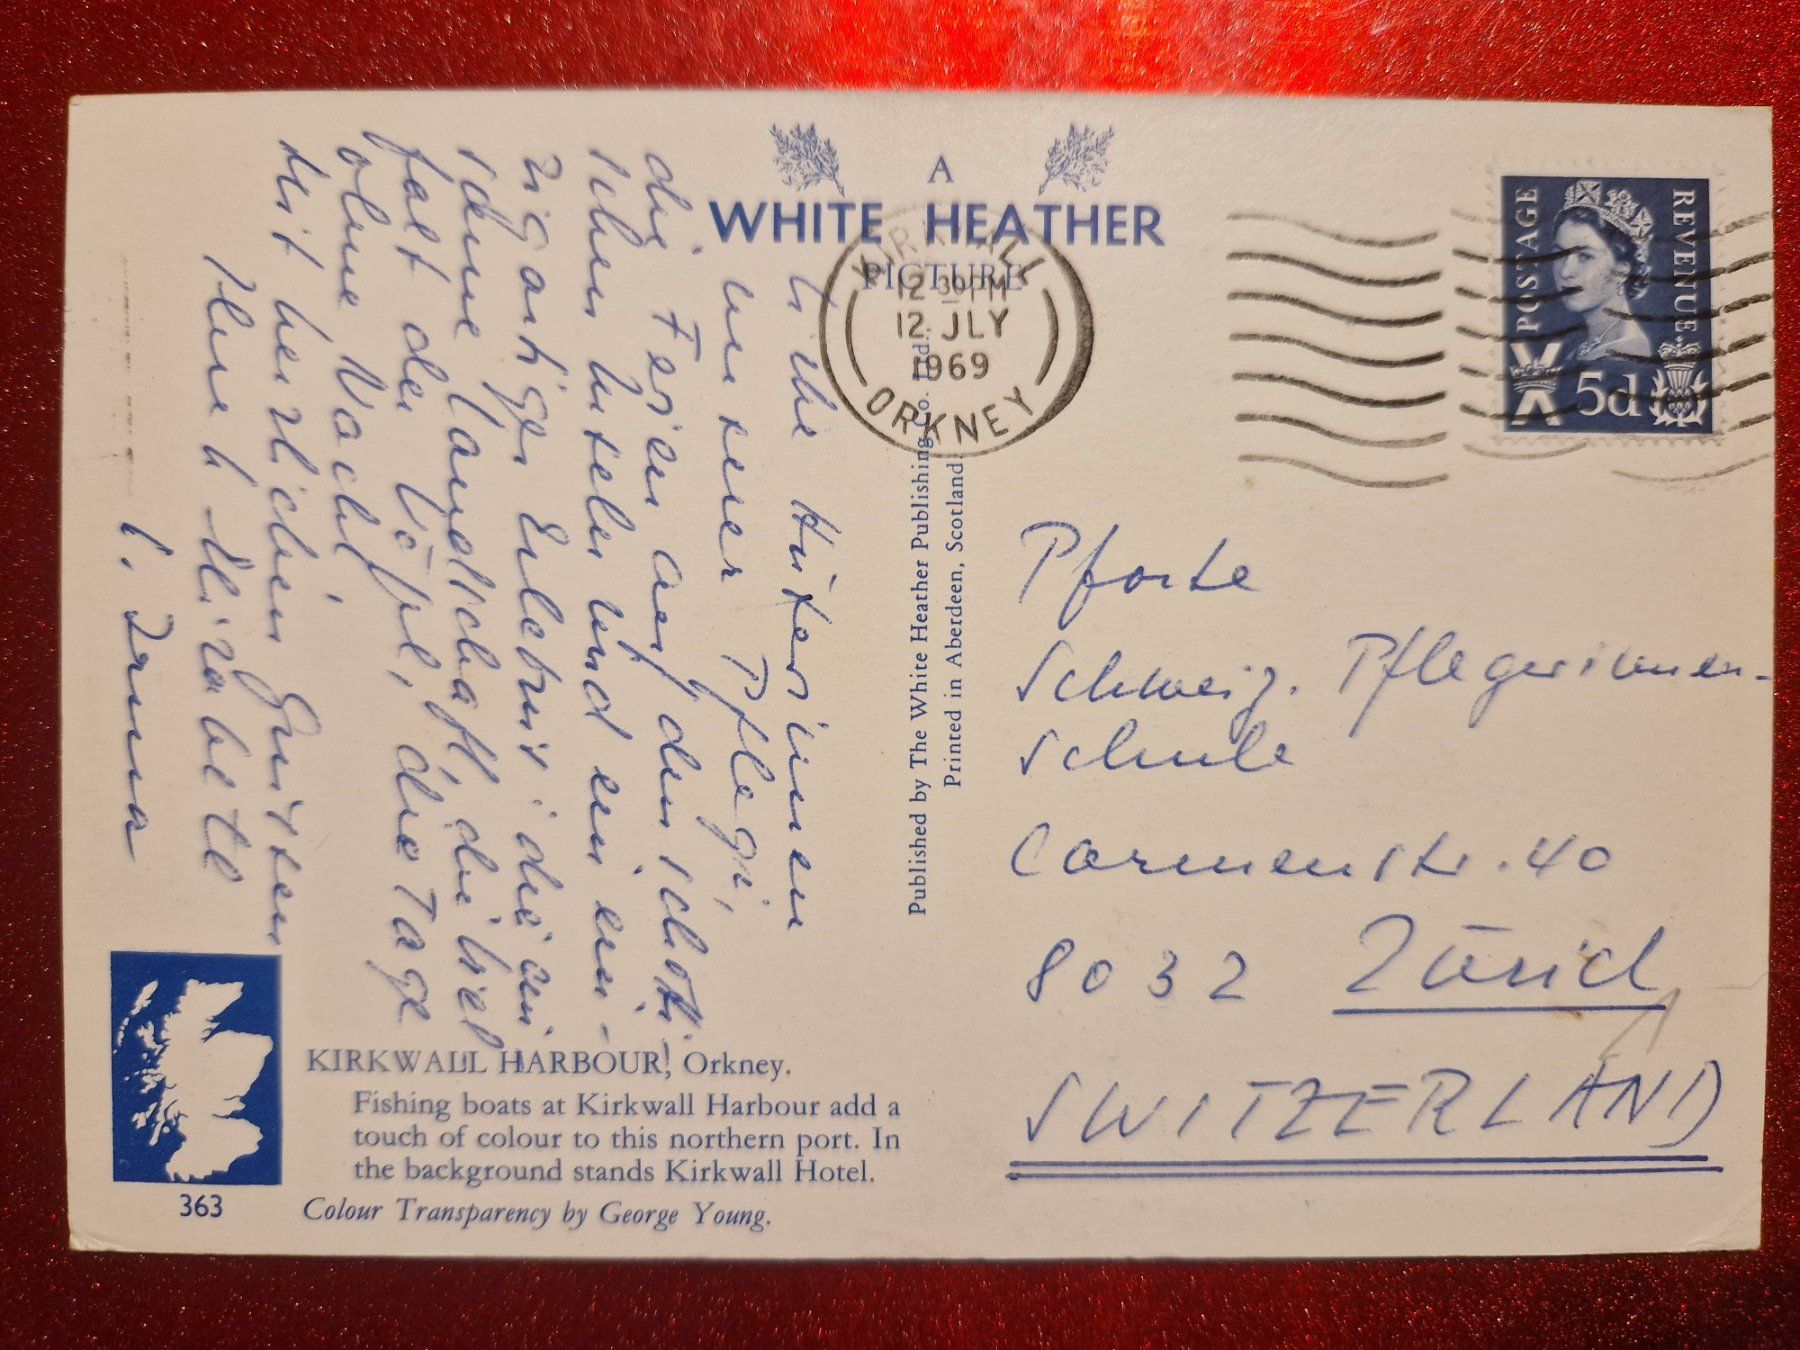 A
WHITE HEATHER
PICTURE
KIRKWALL
12 30 PM
12 JLY
1969
ORKNEY
POSTAGE
REVENUE
5d
Liebe Hüterinnen
unserer Pflegi,
die Ferien auf den schotti-
schen Inseln sind ein ein-
zigartiges Erlebnis: die ein-
same Landschaft, die viel
fast der Vögel, die Tage
ohne Nacht,
Mit herzlichen Grüssen
Elisabeth
Published by The White Heather Publishing Co. Ltd.
Printed in Aberdeen, Scotland
Pforte
Schweiz. Pflegerinnen-
schule
Carmenstr. 40
8032 Zürich
SWITZERLAND
KIRKWALL HARBOUR, Orkney.
Fishing boats at Kirkwall Harbour add a
touch of colour to this northern port. In
the background stands Kirkwall Hotel.
363
Colour Transparency by George Young.